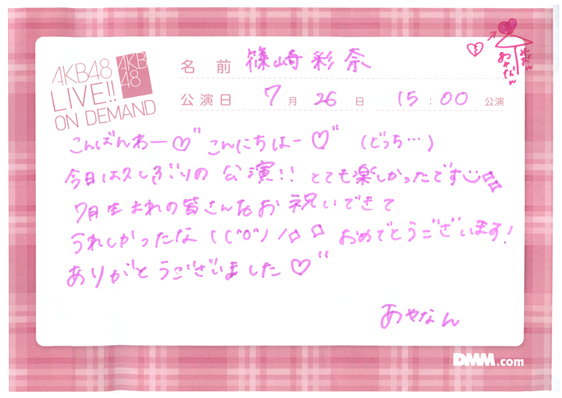 AKB48
LIVE!!
ON DEMAND
AKB
48
名前 篠崎彩奈
公演日 7月26日 15:00公演
こんばんわー♡”こんにちはー♡”（どっち…）
今日は久しぶりの公演!! とても楽しかったです
7月生まれの皆さんをお祝いできて
うれしかったな おめでとうございます!
ありがとうございました♡”
あやなん
DMM.com